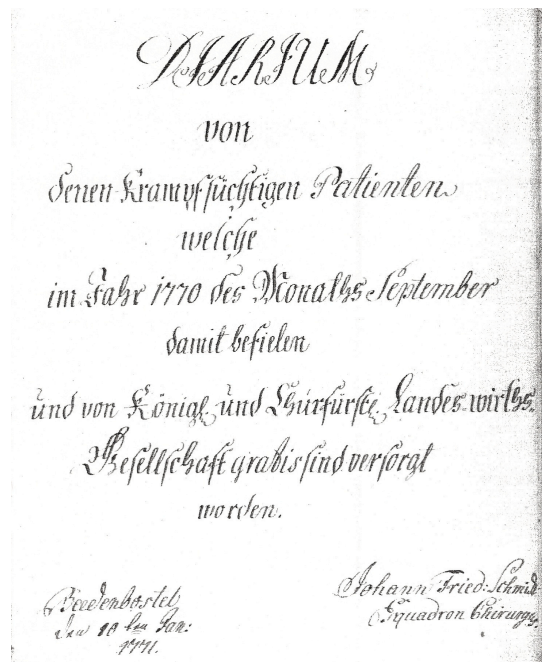 DIARIUM
von
denen Krampfsüchtigen Patienten
welche
im Jahr 1770 des Monaths September
damit befielen
und von Königl. und Chürfürstl. Landes-wirths.
Gesellschaft gratis sind versorgt
worden.
Beedenbostel
den 10ten Jan:
1771.
Johann Fried: Schmidt
Squadron Chirurgus.